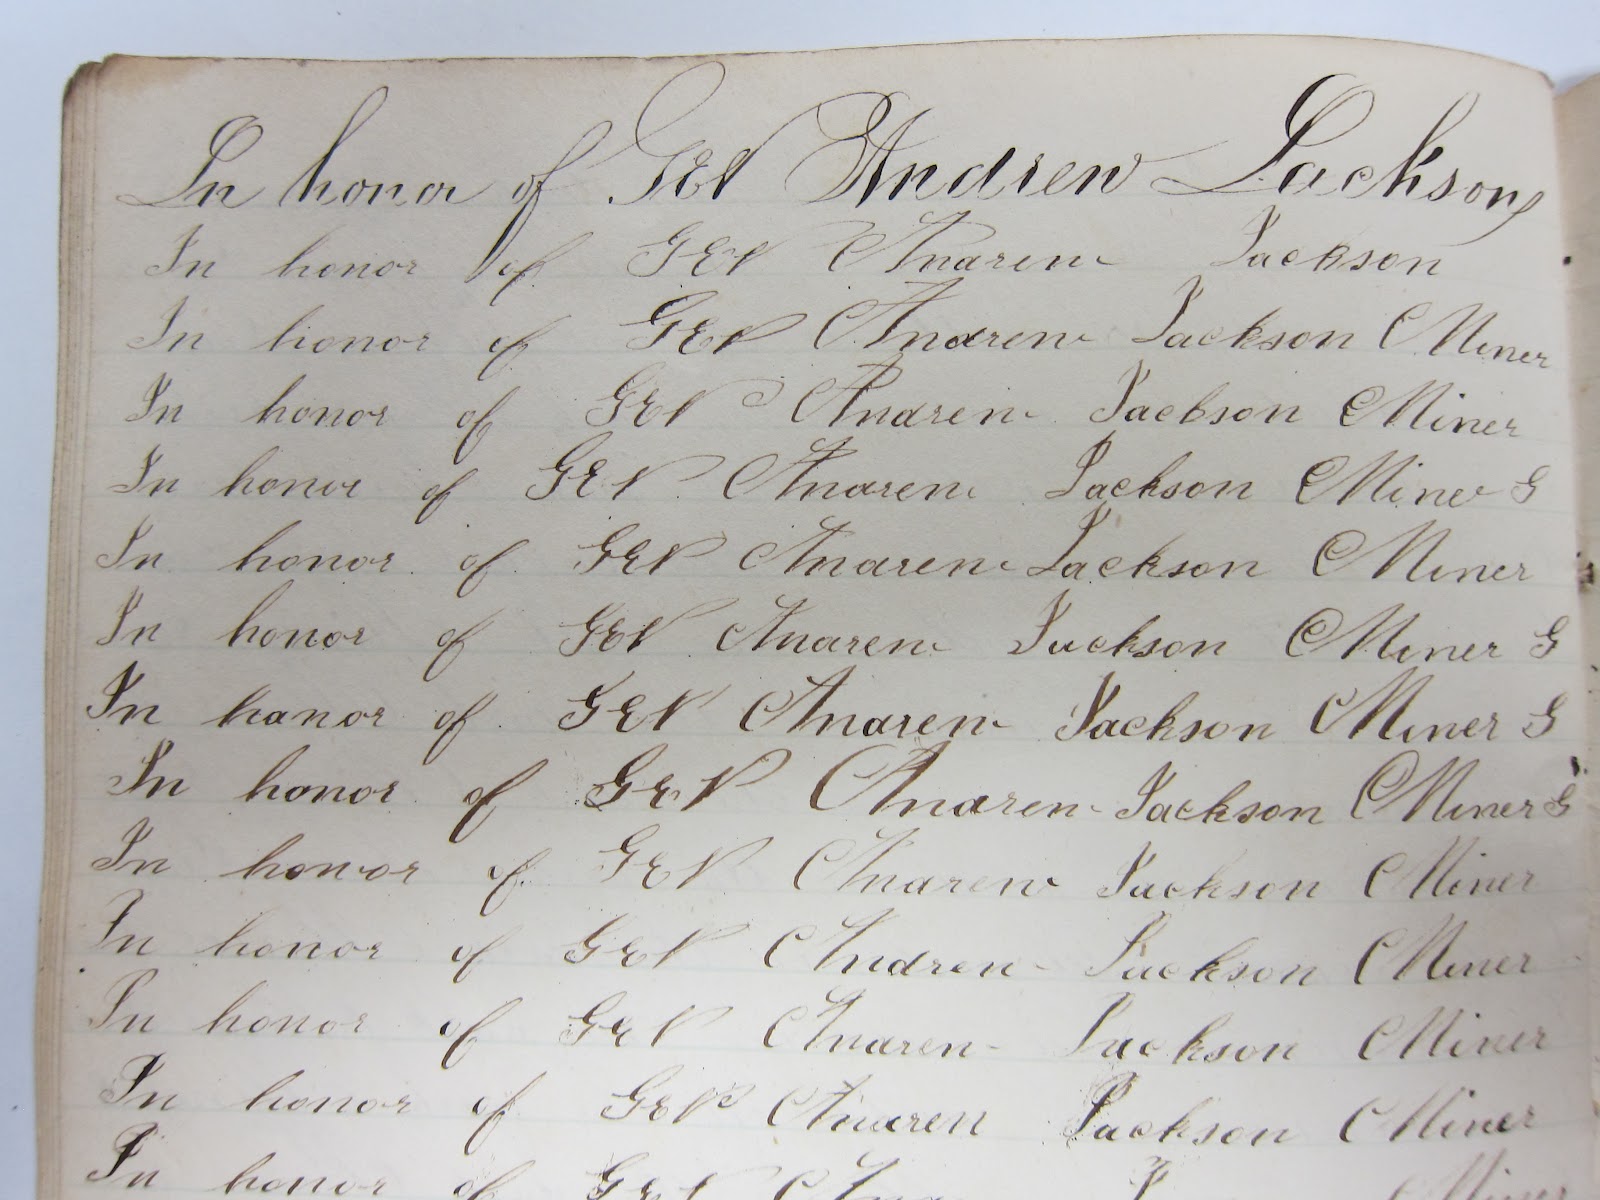 In honor of GEN Andrew Jackson
In honor of GEN Andrew Jackson
In honor of GEN Andrew Jackson Miner
In honor of GEN Andrew Jackson Miner
In honor of GEN Andrew Jackson Miner G
In honor of GEN Andrew Jackson Miner
In honor of GEN Andrew Jackson Miner G
In hanor of GEN Andrew Jackson Miner G
In honor of GEN Andrew Jackson Miner G
In honor of GEN Andrew Jackson Miner
In honor of GEN Andrew Jackson Miner
In honor of GEN Andrew Jackson Miner
In honor of GEN Andrew Jackson Miner
In honor of GEN Miner